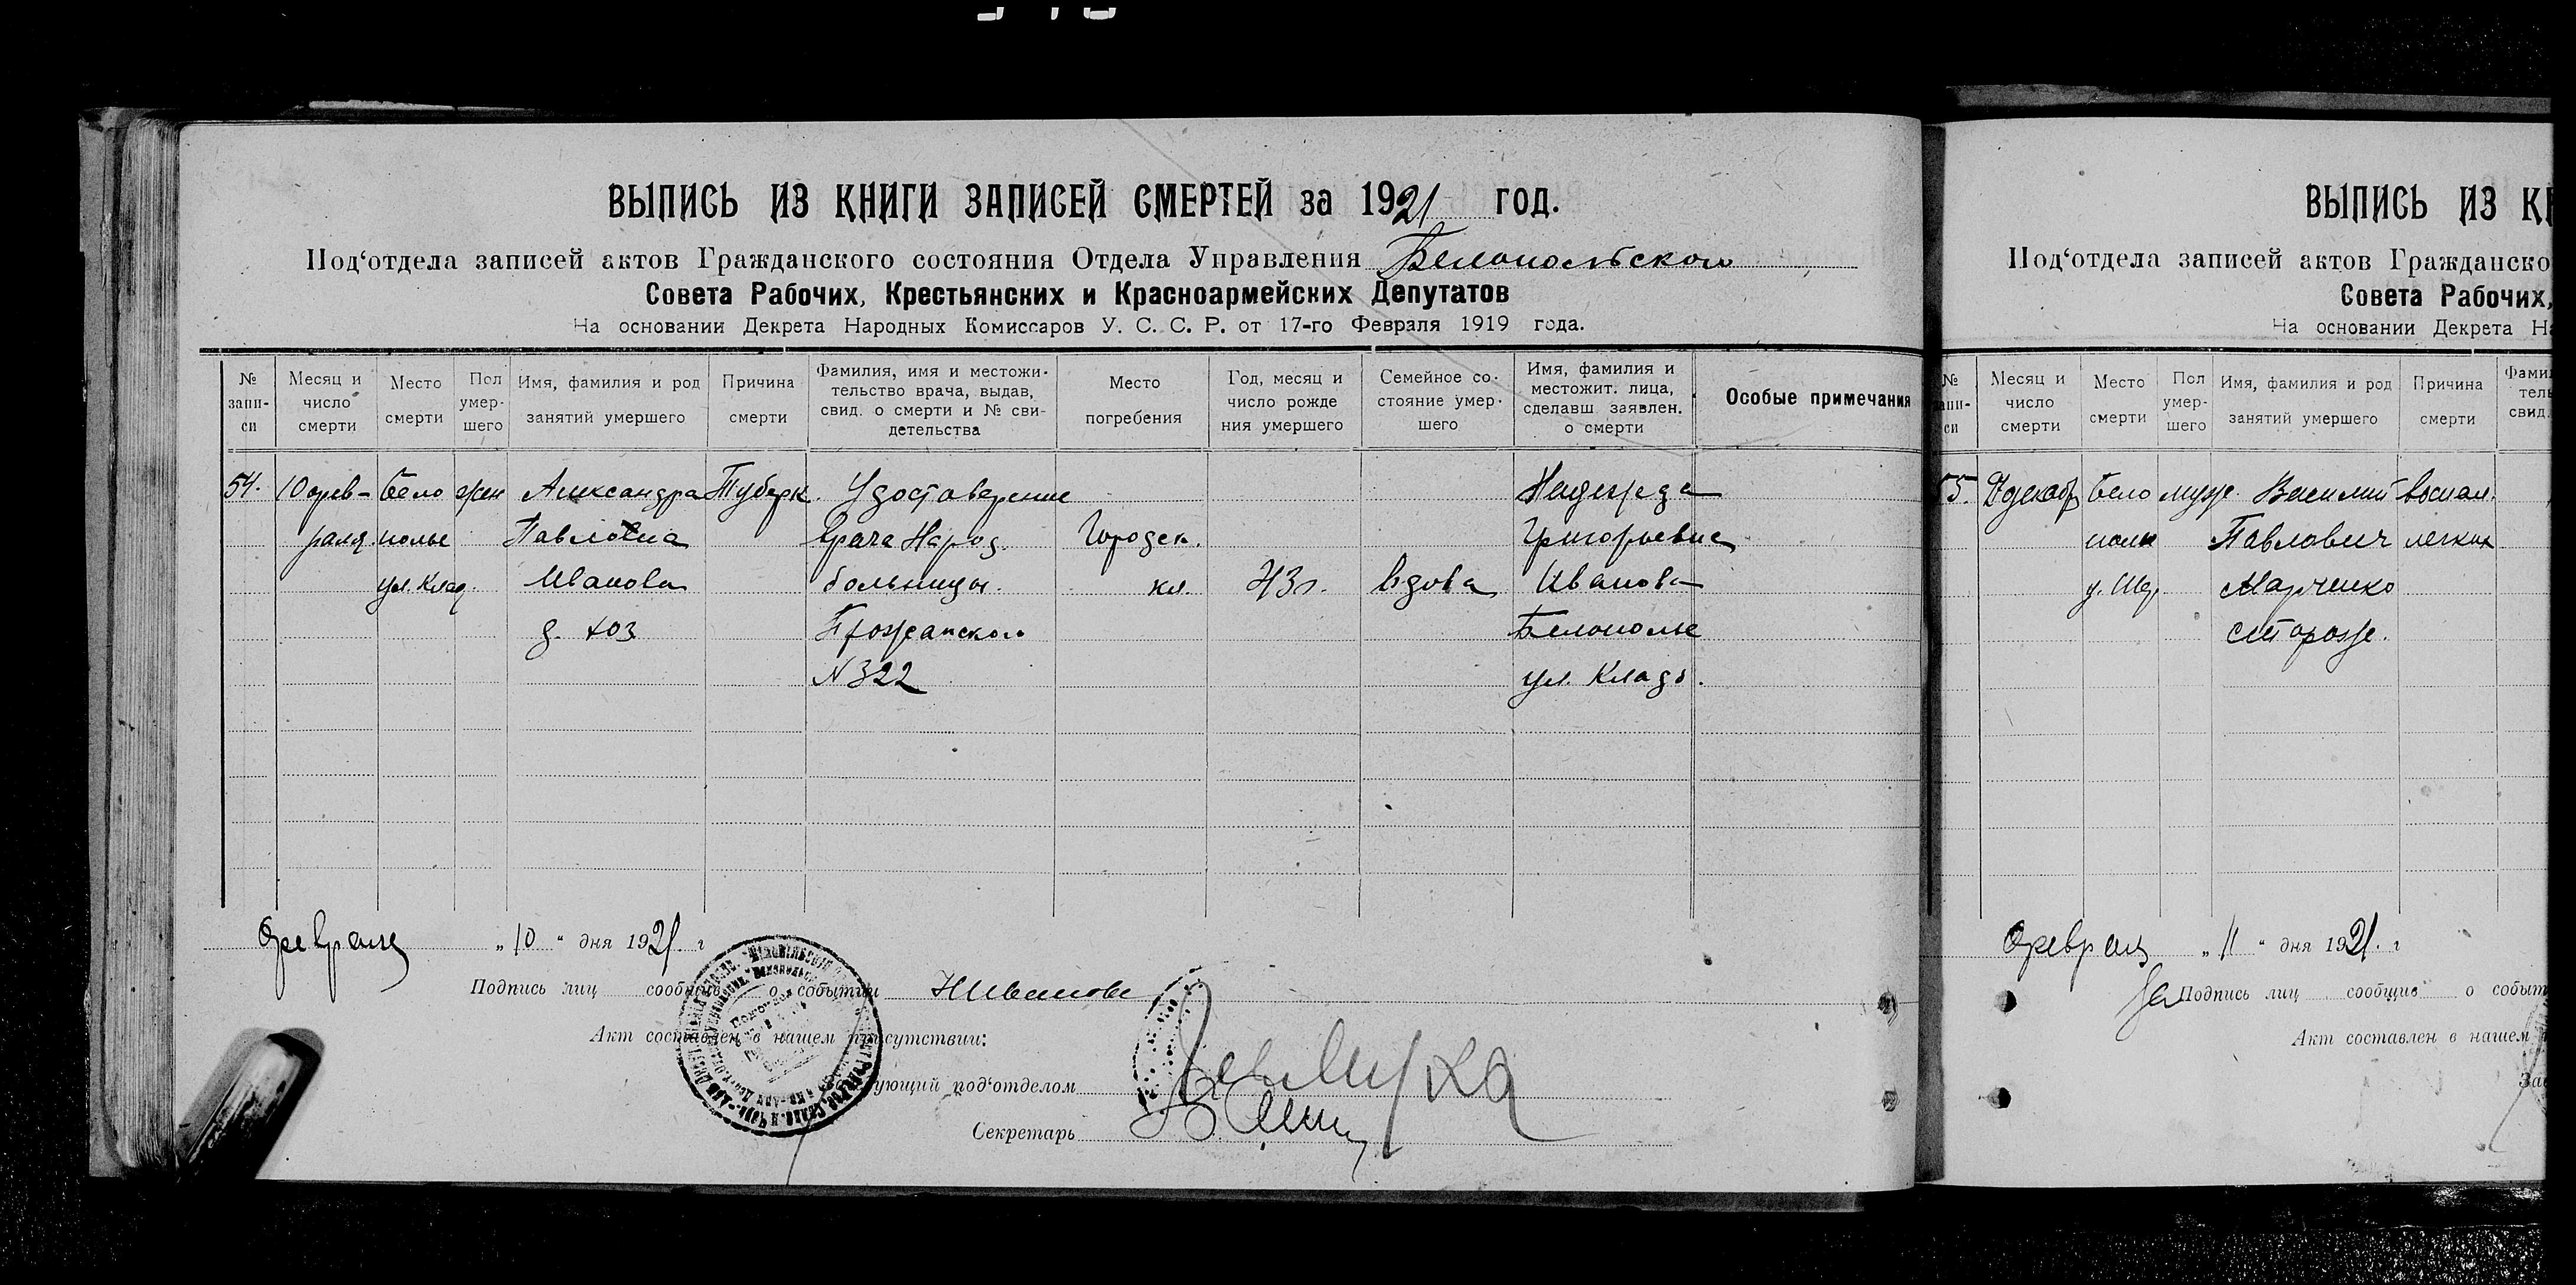 ВЫПИСЬ ИЗ КНИГИ ЗАПИСЕЙ СМЕРТЕЙ за 1921 год.
Под‘отдела записей актов Гражданского состояния Отдела Управления Белопольского
Совета Рабочих, Крестьянских и Красноармейских Депутатов
На основании Декрета Народных Комиссаров У. С. С. Р. от 17-го Февраля 1919 года.
№ запи-си
Месяц и число смерти
Место смерти
Пол умер-шего
Имя, фамилия и род занятий умершего
Причина смерти
Фамилия, имя и местожи-тельство врача, выдав, свид. о смерти и № сви-детельства
Место погребения
Год, месяц и число рожде ния умершего
Семейное со-стояние умер-шего
Имя, фамилия и местожит. лица, сделавш заявлен. о смерти
Особые примечания
54. 10 фев- Бело жен Александра Туберк. Удостоверение Надежда
раля. полье Павловна врача Народ. Городск. Григорьевна
ул. Клад. Иванова больницы. кл. 43 л. вдова Иванова
д. хоз Белополье
N 322 ул. Кладб.
Февраля „10“ дня 1921. г
Подпись лиц сообщив о событии НИванова
Акт составлен в нашем присутствии:
ующий под‘отделом
Секретарь
ВЫПИСЬ ИЗ КН
Под‘отдела записей актов Гражданско
Совета Рабочих,
На основании Декрета Н
№ запи-си
Месяц и число смерти
Место смерти
Пол умер-шего
Имя, фамилия и род занятий умершего
Причина смерти
55. декабр Бело муж. Василий воспал.
полье Павлович легких
Марченко
сторож.
Февраля „11“ дня 1921. г
За Подпись лиц сообщив о событ
Акт составлен в нашем
Зав